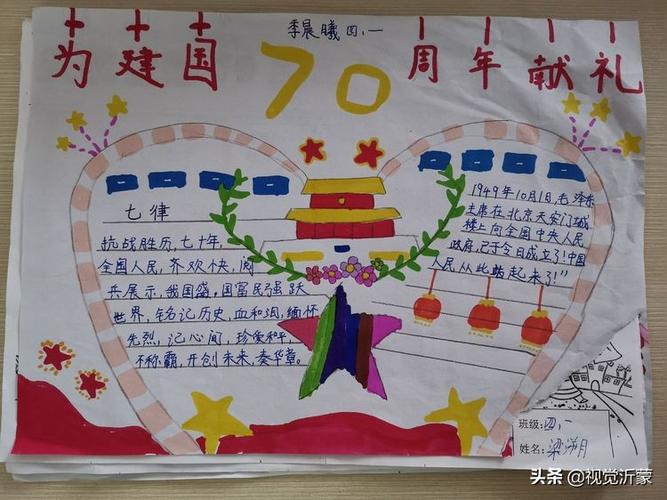 李晨曦 四、一
为建国70周年献礼
七律
抗战胜历,七十年,
全国人民,齐欢快,阅
兵展示,我国盛,国富民强跃
世界,铭记历史,血和泪,缅怀
先烈,记心间,珍爱和平,
不称霸,开创未来,奏华章。
1949年10月1日,毛泽东
主席在北京天安门城
楼上向全国中央人民
政府,已于今日成立了!中国
人民从此站起来了!"
班级:四、一
姓名:梁溯月
头条 @视觉沂蒙